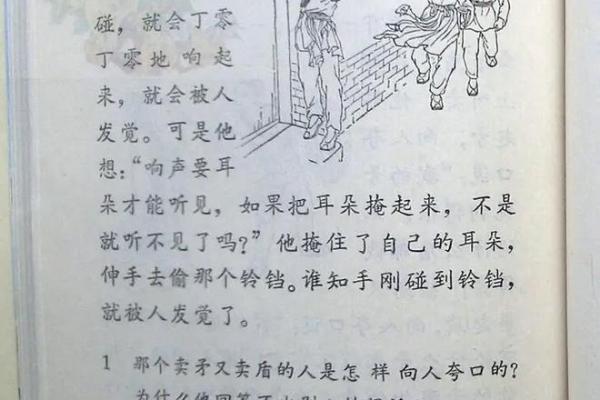 碰，就会丁零
丁零地响起
来，就会被人
发觉。可是他
想：“响声要耳
朵才能听见，如果把耳朵掩起来，不是
就听不见了吗？”他掩住了自己的耳朵，
伸手去偷那个铃铛。谁知手刚碰到铃铛，
就被人发觉了。
1 那个卖矛又卖盾的人是怎样向人夸口的？
为什么他回答不